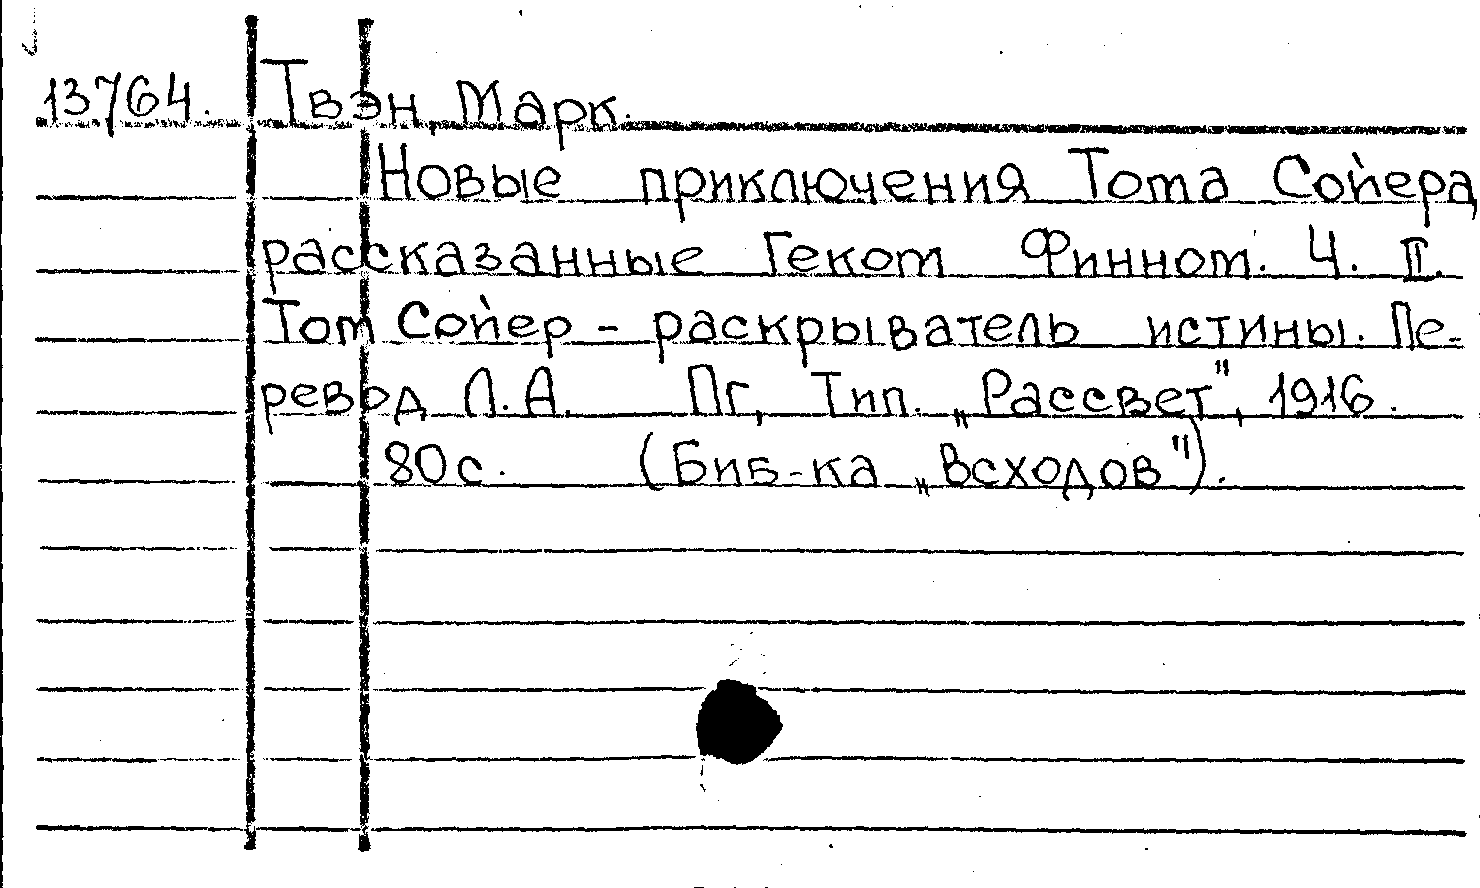 13764. Твэн, Марк.
Новые приключения Тома Сойера,
рассказанные Геком Финном. Ч. II.
Том Сойер - раскрыватель истины. Пе-
ревод Л.А. Пг, Тип. „Рассвет", 1916.
80 с. (Биб-ка „Всходов").